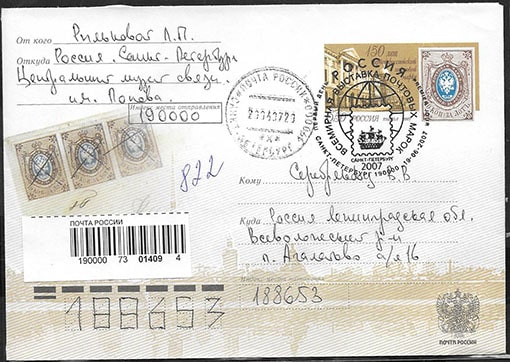 От кого Рильковой Л.П.
Откуда Россия. Санкт-Петербург.
Центральный музей связи
им. Попова.
Индекс места отправления
190000
ПОЧТА РОССИИ
ПЕТЕРБУРГ
150 лет
РОССИЯ
ВСЕМИРНАЯ ВЫСТАВКА ПОЧТОВЫХ МАРОК
САНКТ-ПЕТЕРБУРГ
2007
САНКТ-ПЕТЕРБУРГ 190000 19.06.2007
РОССИЯ
822
Кому
В.В
Куда Россия Ленинградская обл.
Всеволожский р-н
п. Агалатово а/я 16
188653
ПОЧТА РОССИИ
190000 73 01409 4
188653
ПОЧТА РОССИИ